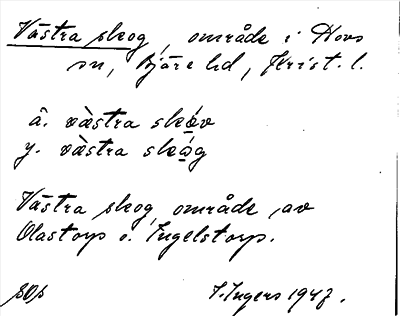 Västra skog, område i Hovs
sn, Bjäre hd, Krist. l.
ä. vàstra skǫ́v
y. vàstra skǫ́g
Västra skog, område av
Olastorp o. Ingelstorp.
sos
I. Ingers 1947.